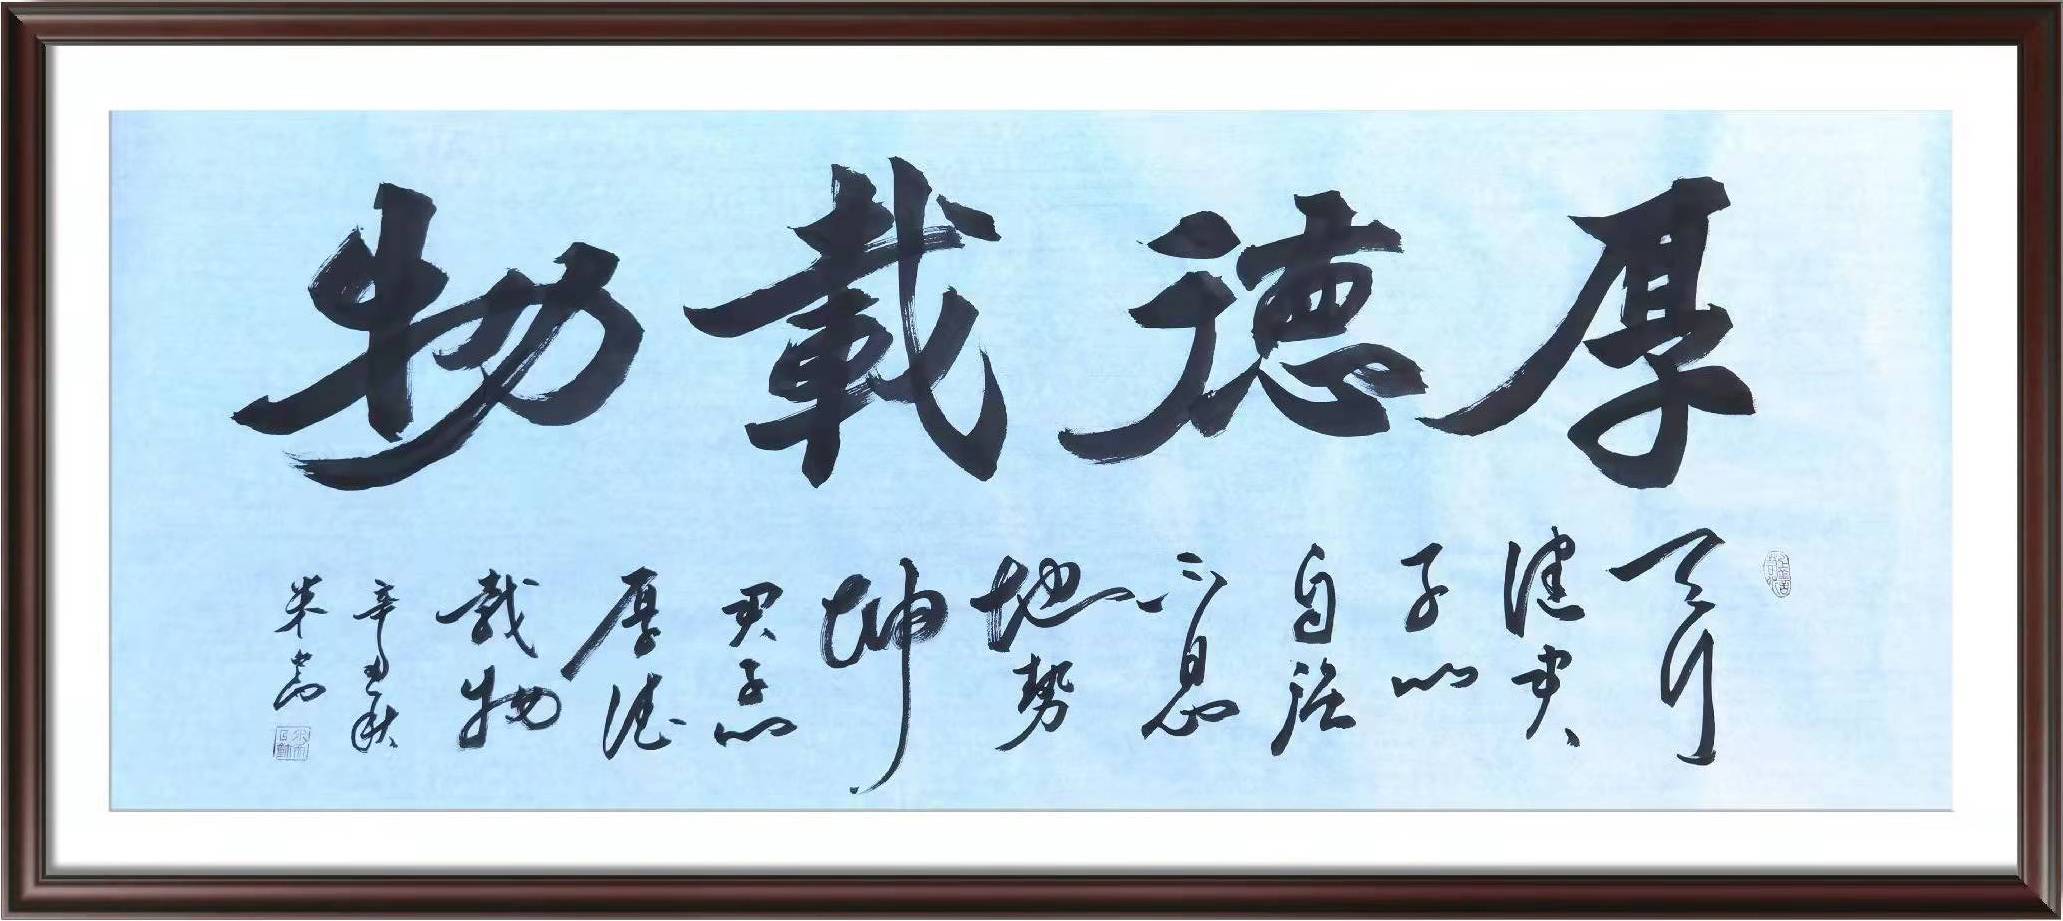 厚德載物
天行
健君
子以
自强
不息
地势
坤
君子以
厚德
載物
辛丑秋